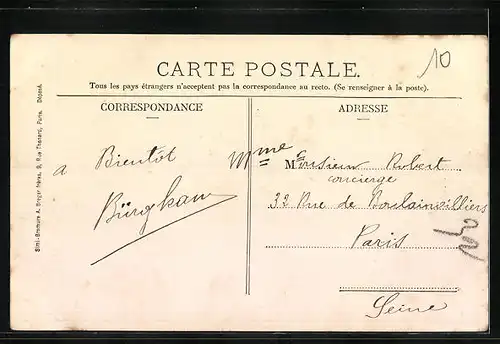 10
CARTE POSTALE.
Tous les pays étrangers n'acceptent pas la correspondance au recto. (Se renseigner à la poste).
CORRESPONDANCE
ADRESSE
a Bientôt
Mme Monsieur Robert
concierge
33 Rue de Boulainvilliers
Paris
Seine
Simi-Bromure A. Breger frères, 9, Rue Thénard, Paris. Déposé.